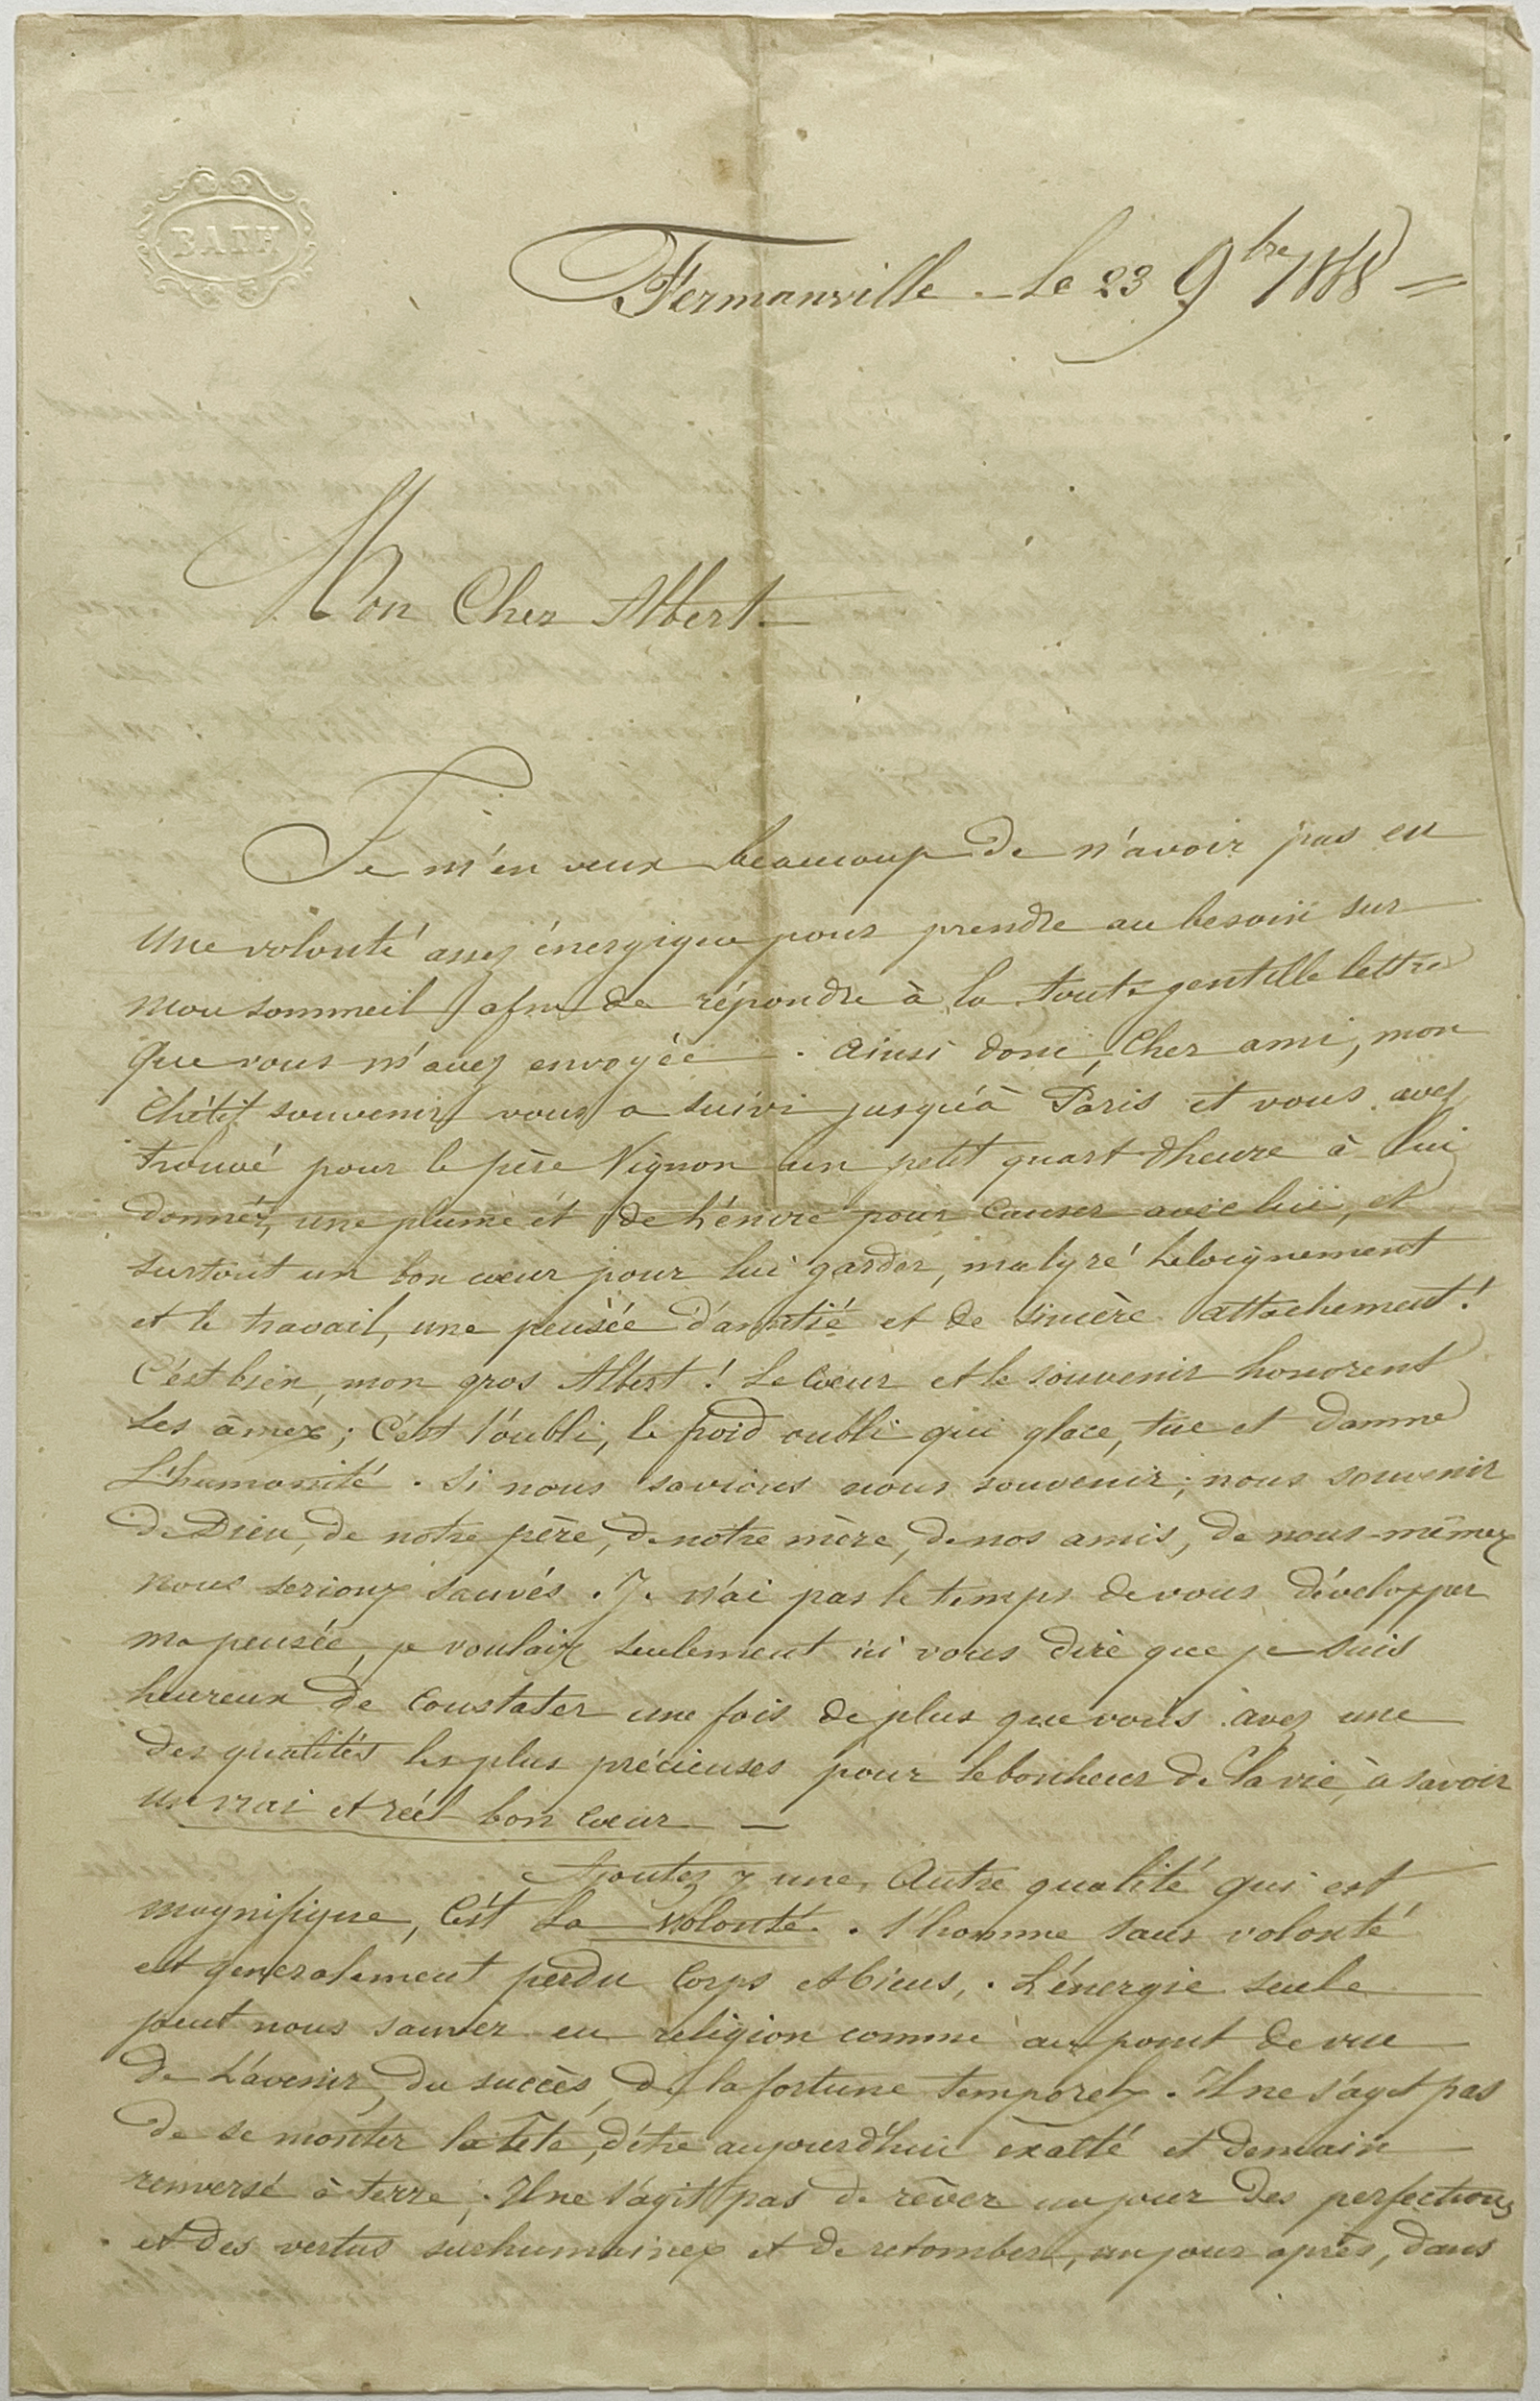 BATH
Fermanville - Le 23 9bre 1868 =
Mon Cher Albert -
Je m'en veux beaucoup de n'avoir pas eu
une volonté assez énergique pour prendre au besoin sur
mon sommeil afin de répondre à la toute gentille lettre
que vous m'avez envoyée. Ainsi donc, Cher ami, mon
Chétif souvenir vous a suivi jusqu'à Paris et vous avez
trouvé pour le père Vignon un petit quart d'heure à lui
donner, une plume et de l'encre pour Causer avec lui, et
surtout un bon cœur pour lui garder, malgré l'eloignement
et le travail, une pensée d'amitié et de sincère attachement!
C'est bien, mon gros Albert! Le Cœur et le souvenir honorent
Les âmes; C'est l'oubli, le froid oubli qui glace, tue et damne
L'humanité. Si nous savions nous souvenir; nous souvenir
de Dieu, de notre père, de notre mère, de nos amis, de nous-mêmes
nous serions sauvés. Je n'ai pas le temps de vous développer
ma pensée, je voulais seulement ici vous dire que je suis
heureux de Constater une fois de plus que vous avez une
des qualités les plus précieuses pour le bonheur de la vie, à savoir
un vrai et réel bon Cœur -
Ajoutez y une Autre qualité qui est
magnifique, C'est La volonté. L'homme sans volonté
est generalement perdu Corps et biens,. L'énergie seule
peut nous sauver en religion comme au point de vue
de L'avenir, du succès, de la fortune temporel. Il ne s'agit pas
de se monter la tête, d'être aujourd'hui exalté et demain
renversé à terre; Il ne s'agit pas de rêver un jour des perfections
et des vertus surhumaines et de retomber, un jour après, dans